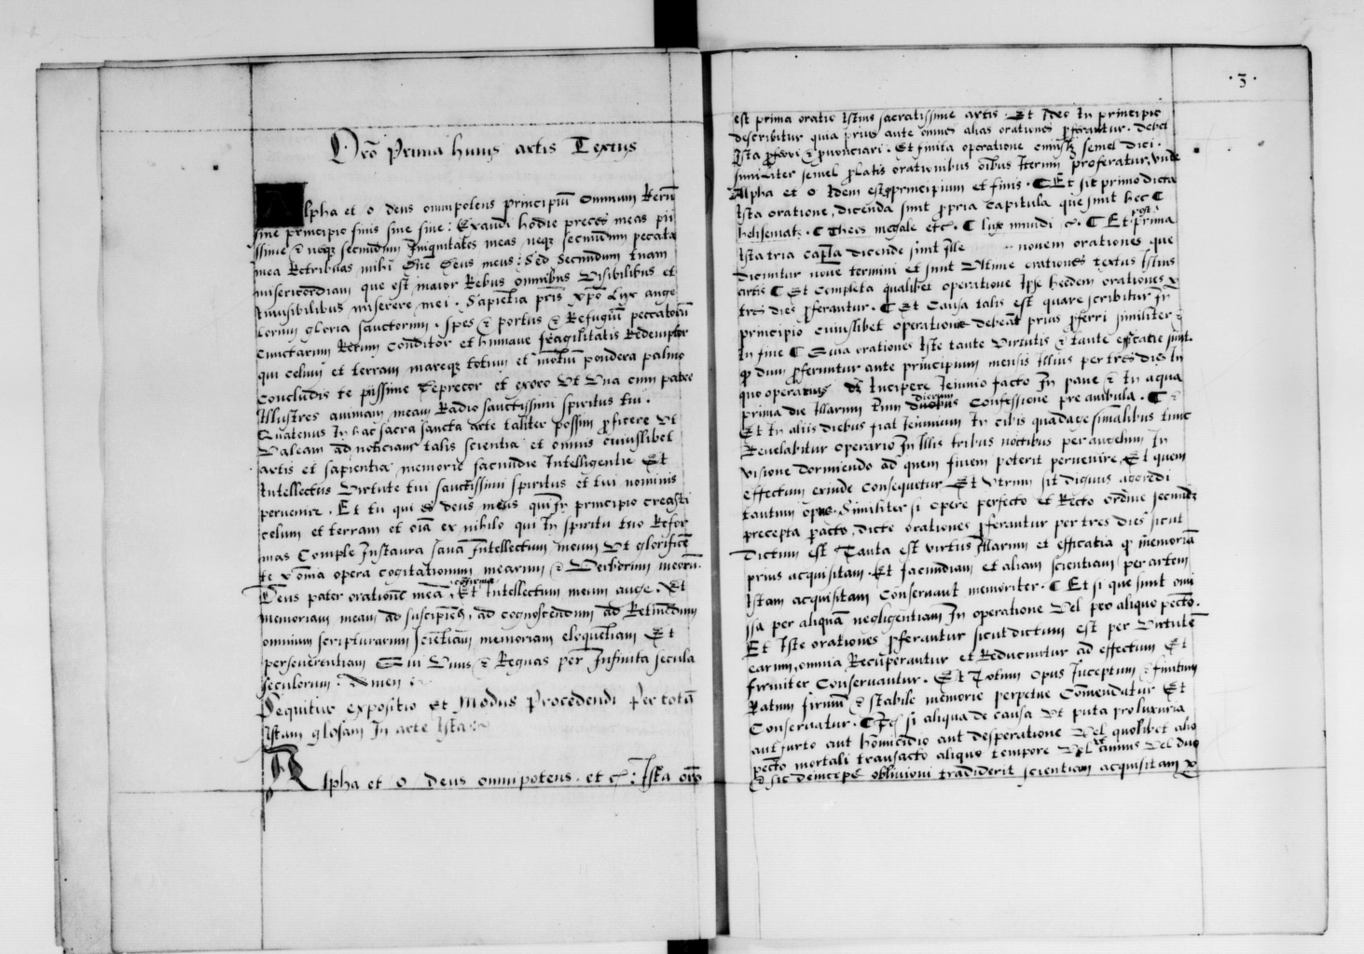 Orō Prima huius artis Textus
Alpha et o deus omnipotens principiū omnium Rerū
sine principio finis sine fine: Exaudi hodie preces meas pii
ssime & neqꝫ secundum Iniquitates meas neqꝫ secundum peccata
mea Retribuas mihi dn̄e deus meus: Sed secundum tuam
misericordiam que est maior Rebus omnibus Visibilibus et
Inuisibilibus miserere mei. Sapientia pr̄is xpō Lux ange
lorum gloria sanctorum. spes & portus & Refugiū peccatorū
Cunctarum Rerum Conditor et humane fragilitatis Redemptor
qui celum et terram mareqꝫ totum et mōtiū pondera palmo
Concludis te piissime deprecor et exoro Vt Vna cum patre
Illustres animam meam Radio sanctissimi spiritus tui.
Quatenus In hac sacra sancta arte taliter possim proficere Vt
Valeam ad noticiam talis scientie et omnis cuiuslibet
artis et sapientie memorie facundie Intelligentie Et
Intellectus Virtute tui sanctissimi spiritus et tui nominis
peruenire. Et tu qui es deus meus qui In principio creasti
celum et terram et oīa ex nihilo qui In spiritu tuo Refor
mas Comple Instaura sana Intellectum meum Vt glorificē
te ꝑ omīa opera cogitationum mearum & Verborum meorū.
Deus pater orationē meā confirma Et Intellectum meum auge. Et
memoriam meam ad suscipiēdū, ad cognoscendum ad Retinēdum
omnium scripturarum scientiam memoriam eloquentiam Et
perseuerentiam Qui Viuis & Regnas per Infinita secula
seculorum: Amen:
Sequitur expositio et Modus Procedendi per totā
Istam glosam In arte Ista:
Alpha et o deus omnipotens. et c̄: Ista orō
·3·
est prima oratio Istius sacratissime artis. Et Ideo In principio
describitur quia prius ante omnes alias orationes proferantur. debet
Ista proferri & pronunciari. Et finita operatione cuiuslꝫ semel dici.
similiter semel prolatis orationibus oībus Iterum proferatur, vnde
Alpha et o Idem est qꝫ principium et finis. ¶ Et sit primo dicta
Ista oratione, dicenda sunt propria Capitula que sunt hec ¶
heliscmath. ¶ Theos megale etc. ¶ lux mundi &c. ¶ Et post prima
Ista tria capl̄a dicende sunt Ille nouem orationes que
dicuntur noue termini et sunt Vltime orationes textus Istius
artis ¶ Et completa qualibet operatione Ipse hedem orationes ꝑ
tres dies proferantur. ¶ Et Causa talis est quare scribitur In
principio cuiuslibet operationē debeāt prius proferri similiter &
In fine ¶ Quia orationes Iste tante Virtutis & tante efficatie sunt
qꝫ dum proferuntur ante principium mensis Illius per tres dies In
quo operatius dꝫ Incipere Ieiunio facto In pane & In aqua
prima die Illarum trium dierum Confessione pre ambula. ¶
Et In aliis diebus fiat Ieiunium In cibis quadagesimalibus tunc
Reuelabitur operario In Illis tribus noctibus per angelum In
visione dormiendo ad quem finem poterit peruenire, Et quem
effectum exinde Consequetur. Et Vtrum sit dignus agredi
tantum opus. Similiter si opere perfecto et Recto ordine secundꝫ
precepta peracto, dicte orationes proferantur per tres dies sicut
Dictum est Tanta est virtus Illarum et efficatia qꝫ memoria
prius acquisitam. Et facundiam et aliam scientiam per artem
Istam acquisitam Conseruant memoriter. ¶ Et si que sunt omi
ssa per aliquā negligentiam In operatione Vel pro aliquo pecto.
Et Iste orationes proferantur sicut dictum est per Virtutē
earum, omnia Recuperantur et Reducuntur ad effectum Et
firmiter Conseruantur. Et Totum Opus Inceptum & finitum
Ratum firmū & stabile memorie perpetue Comendatur Et
Conseruatur. ¶ Qꝫ si aliqua de causa Vt puta pro luxuria
aut furto aut homicidio aut desperatione Vel quolibet alio
pecto mortali transacto aliquo tempore Vel annus Vel duo
& sic deinceps obliuioni tradiderit scientiam acquisitam ꝑ